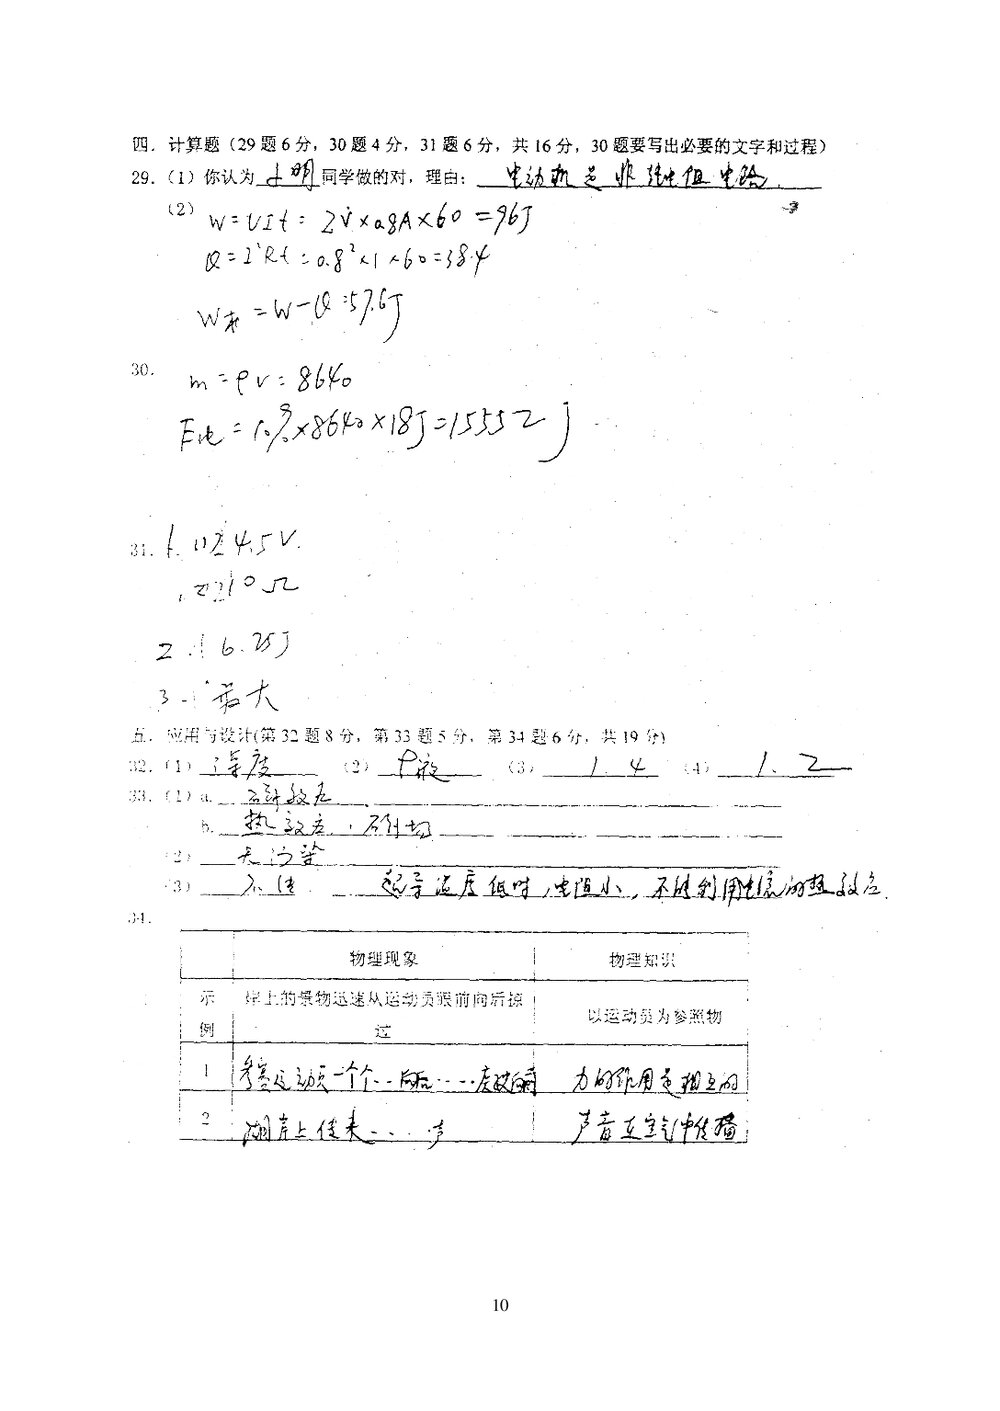 四．计算题（29题6分，30题4分，31题6分，共16分，30题要写出必要的文字和过程）
29．（1）你认为 小明 同学做的对，理由： 电动机是非纯电阻电路．
（2） W=UIt=2V×0.8A×60=96J
Q=I²Rt=0.8²×1×60=38.4
W机=W-Q=57.6J
30． m=ρv=8640
×8640×18J=15552J
31．1. 4.5V.
10Ω
2. 6.25J
3. 最大
五．应用与设计(第32题8分，第33题5分，第34题6分，共19分)
32．（1） 深度 （2） （3） 1.4 （4） 1.2
33．（1）a.
b. 热效应
（2） 无污染
（3） 温度低时，电阻小，不能利用电流的热效应.
34．
物理现象 物理知识
示例 岸上的景物迅速从运动员眼前向后掠过 以运动员为参照物
1 参赛运动员一个个‥向后‥‥ 力的作用是相互的
2 湖岸上传来‥‥声 声音在空气中传播
10